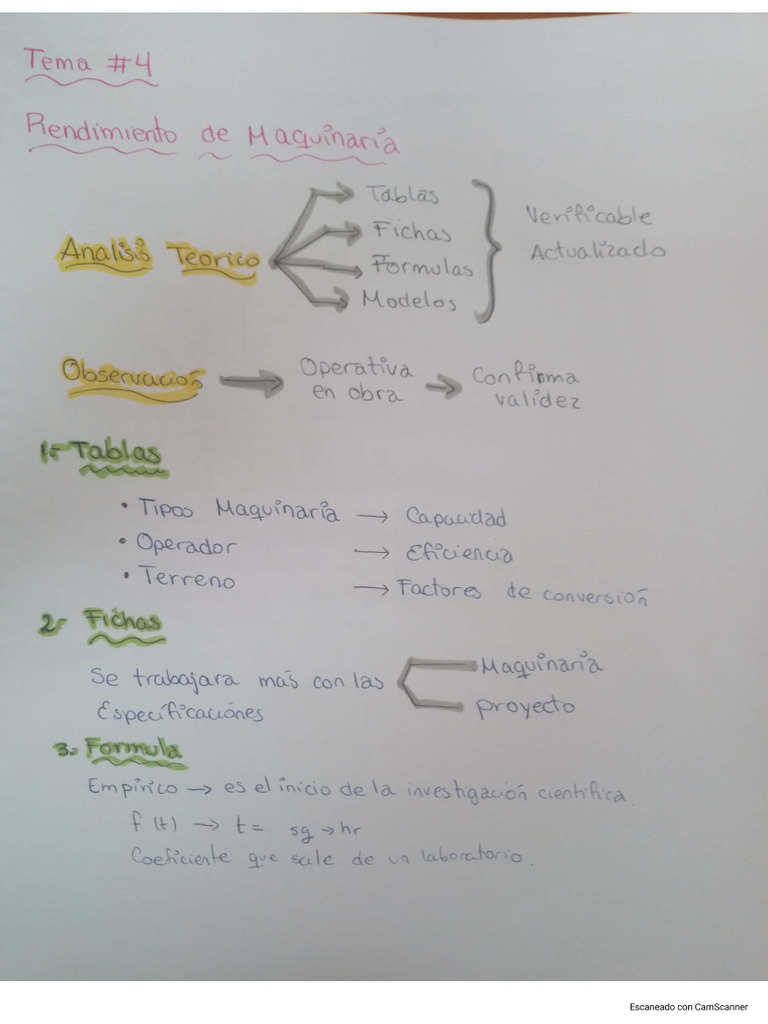 Tema #4
Rendimiento de Maquinaria
Analisis Teorico
Tablas
Fichas
Formulas
Modelos
Verificable
Actualizado
Observación → Operativa en obra → Confirma validez
1.- Tablas
• Tipos Maquinaria → Capacidad
• Operador → Eficiencia
• Terreno → Factores de conversión
2.- Fichas
Se trabajara más con las
Especificaciónes
Maquinaria
proyecto
3.- Formula
Empírico → es el inicio de la investigación cientifica.
f (t) → t = sg → hr
Coeficiente que sale de un laboratorio.
Escaneado con CamScanner